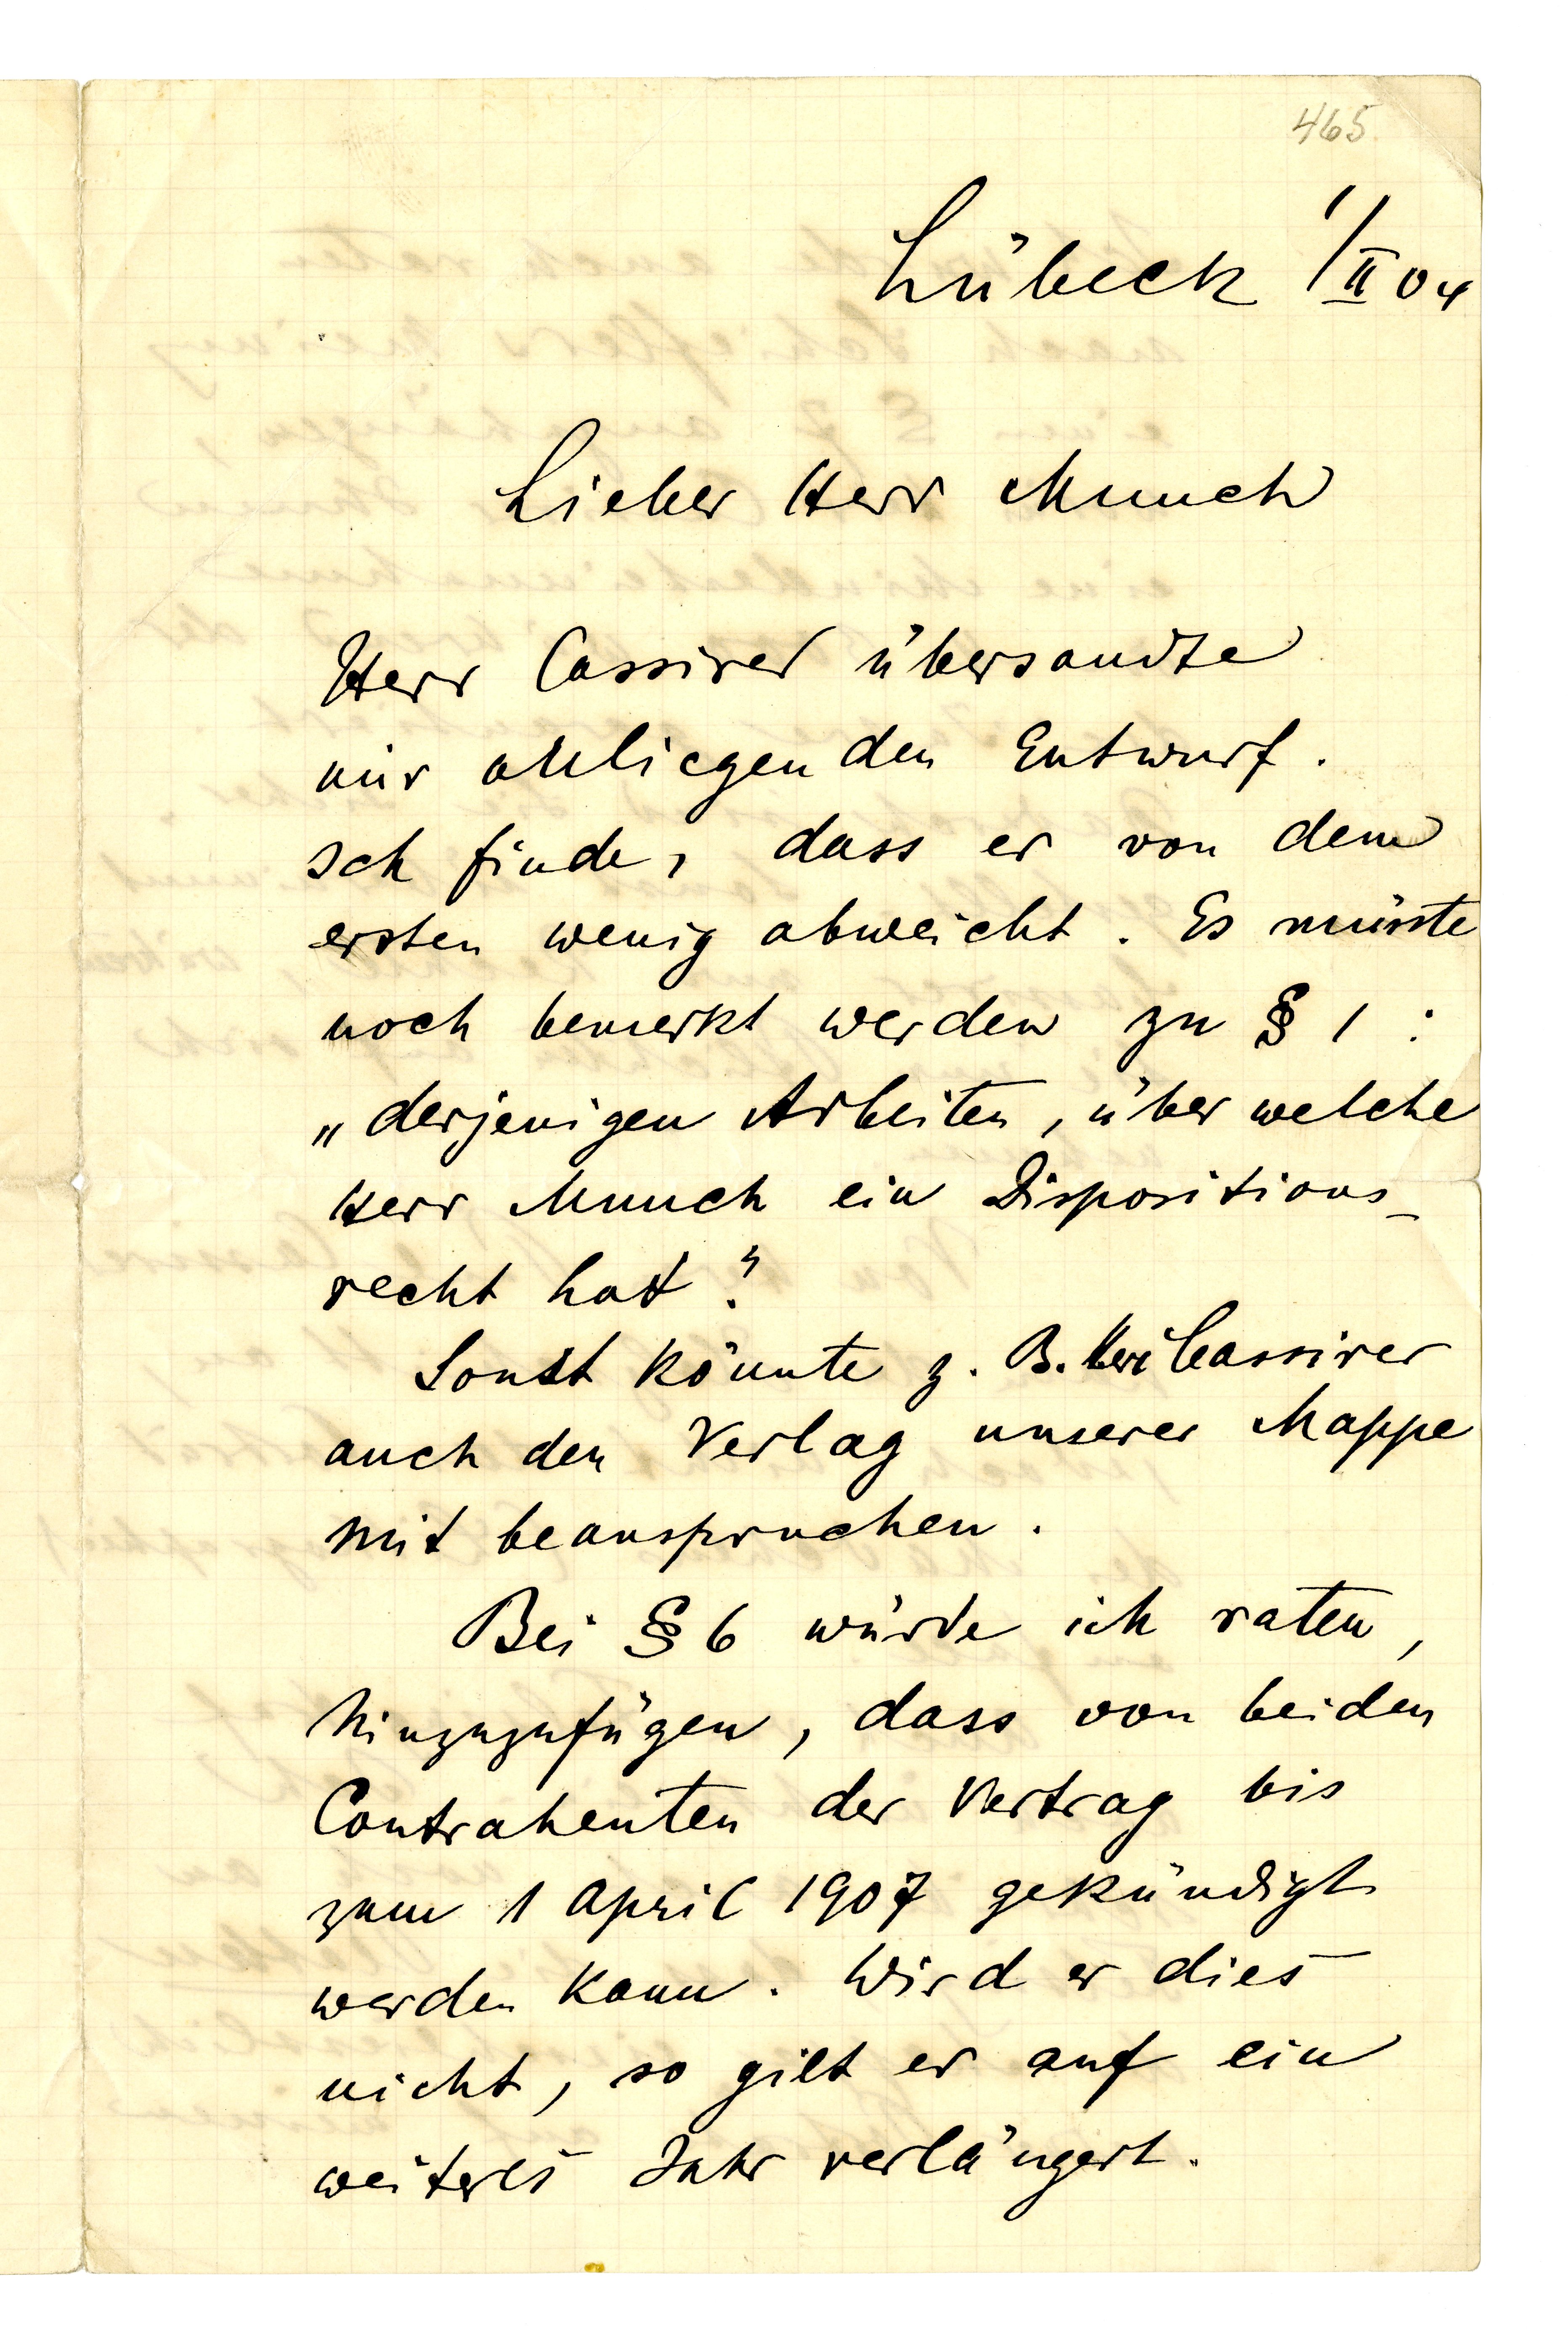 465
Lübeck 1/II 04
Lieber Herr Munch
Herr Cassirer übersandte
mir anliegenden Entwurf.
Ich finde, dass er von dem
ersten wenig abweicht. Es müsste
noch bemerkt werden zu § 1 :
„derjenigen Arbeiten, über welche
Herr Munch ein Dispositions-
recht hat?
Sonst könnte z. B. Herr Cassirer
auch den Verlag unserer Mappe
mit beanspruchen.
Bei § 6 würde ich raten,
hinzuzufügen, dass von beiden
Contrahenten der Vertrag bis
zum 1 April 1907 gekündigt
werden kann. Wird er dies
nicht, so gilt er auf ein
weiteres Jahr verlängert.